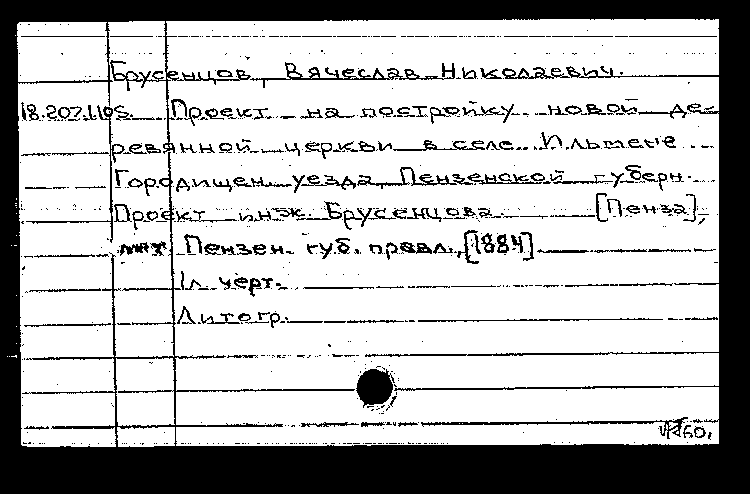 Брусенцов, Вячеслав Николаевич.
18.207.1.105. Проект на постройку новой де-
ревянной церкви в селе Ильмене
Городищен. уезда, Пензенской губерн.
Проект инж. Брусенцова. [Пенза],
Пензен. губ. правл., [1884].
1л. черт.
Литогр.